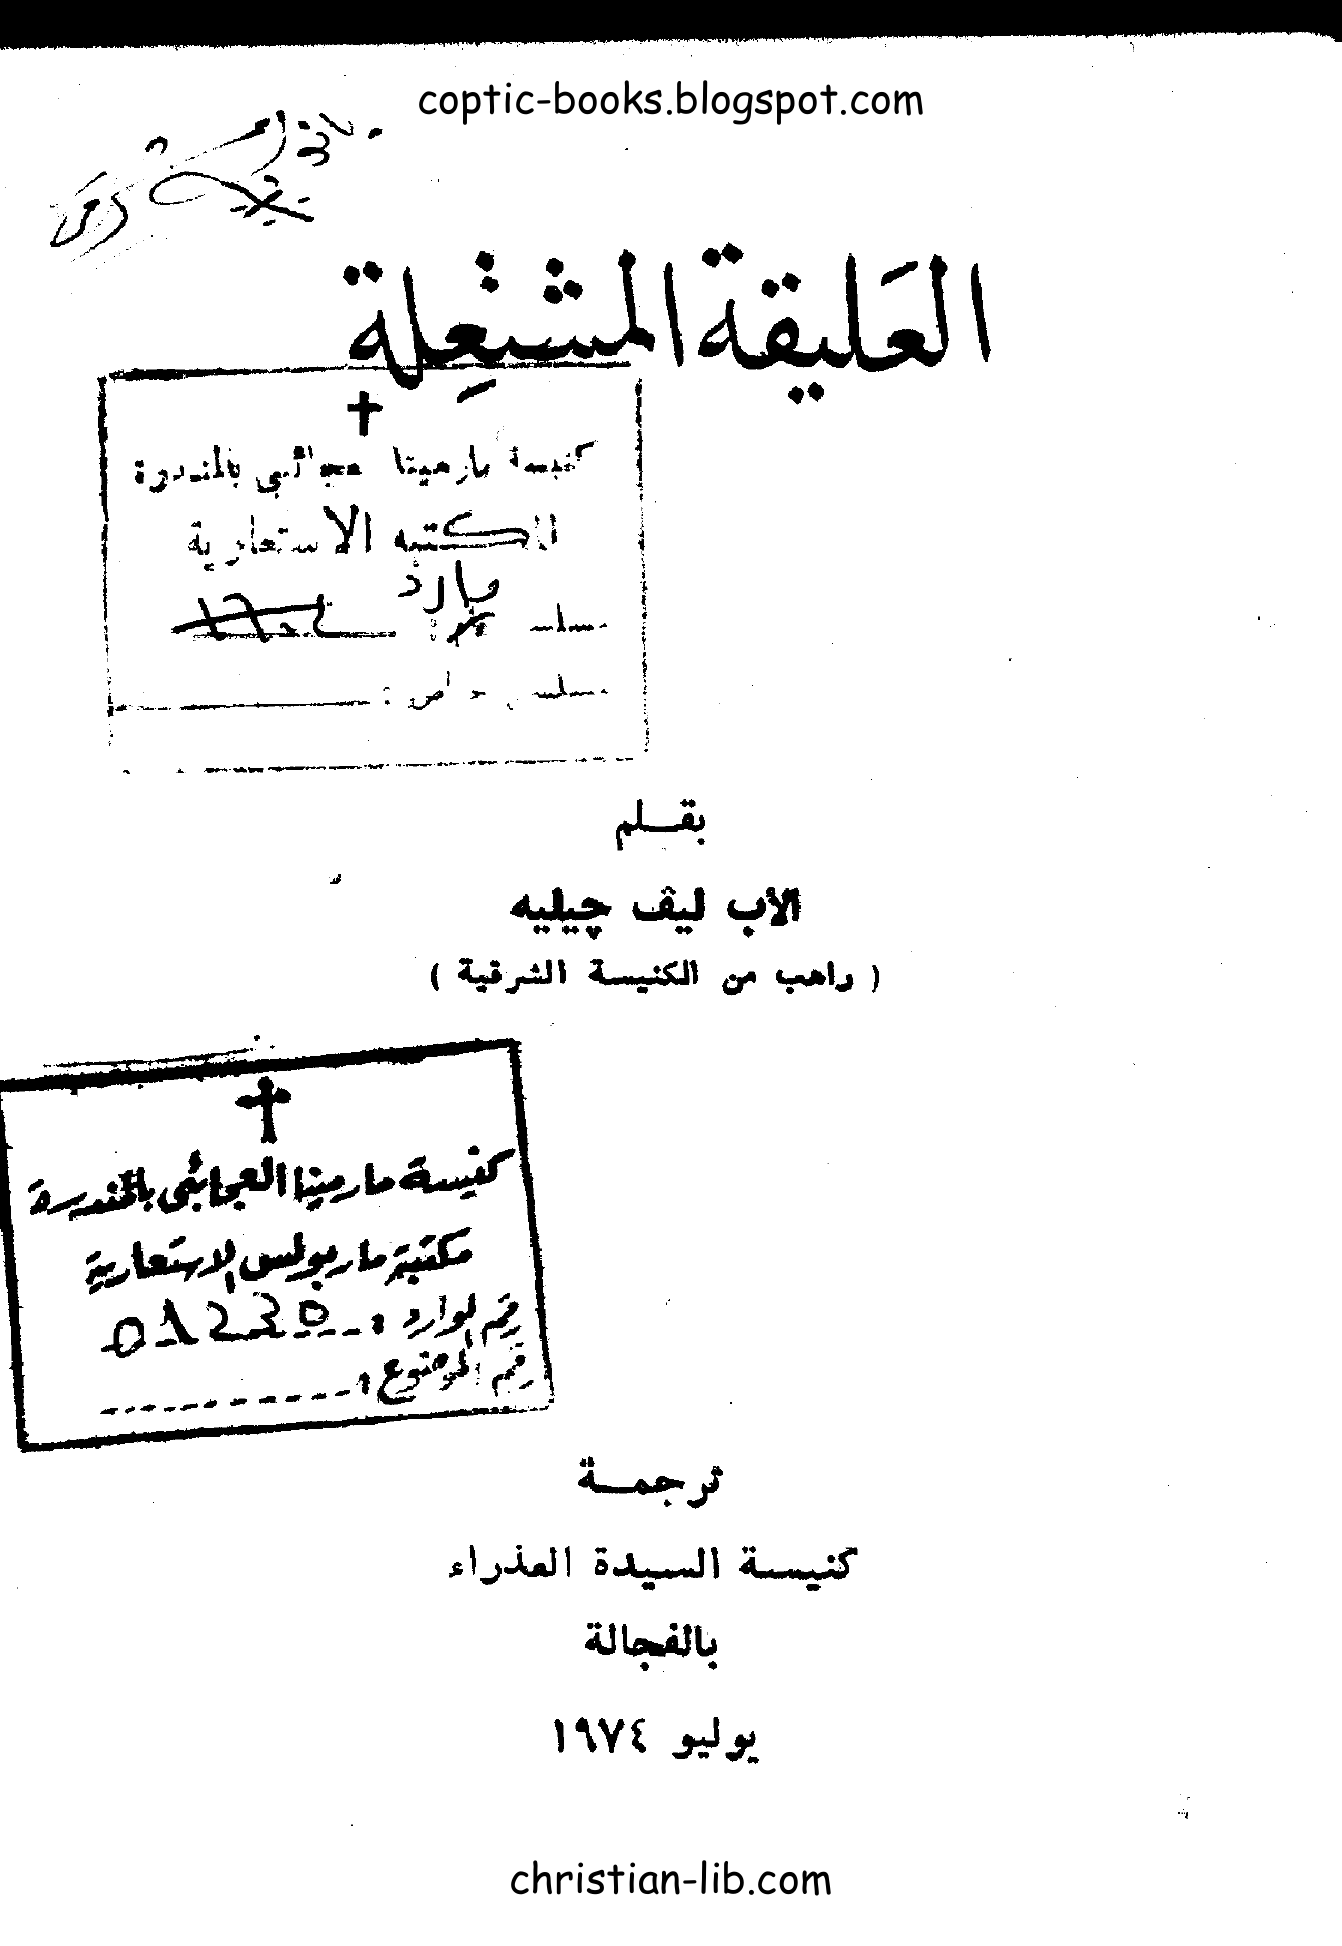 coptic-books.blogspot.com
العَليقة المشتعِلة
كنيسة مارمينا عجائبي بالمندرة
المكتبه الاستعارية
وارد
مسلسل
مسلسل خاص :
بقـــلم
الأب ليڤ چيليه
( راهب من الكنيسة الشرقية )
كنيسة مارمينا العجائبى بالمندرة
مكتبة ماربولس الاستعارية
رقم الوارد :
رقم الموضوع :
ترجمـــة
كنيسة السيدة العذراء
بالفجالة
يوليو ١٩٧٤
christian-lib.com